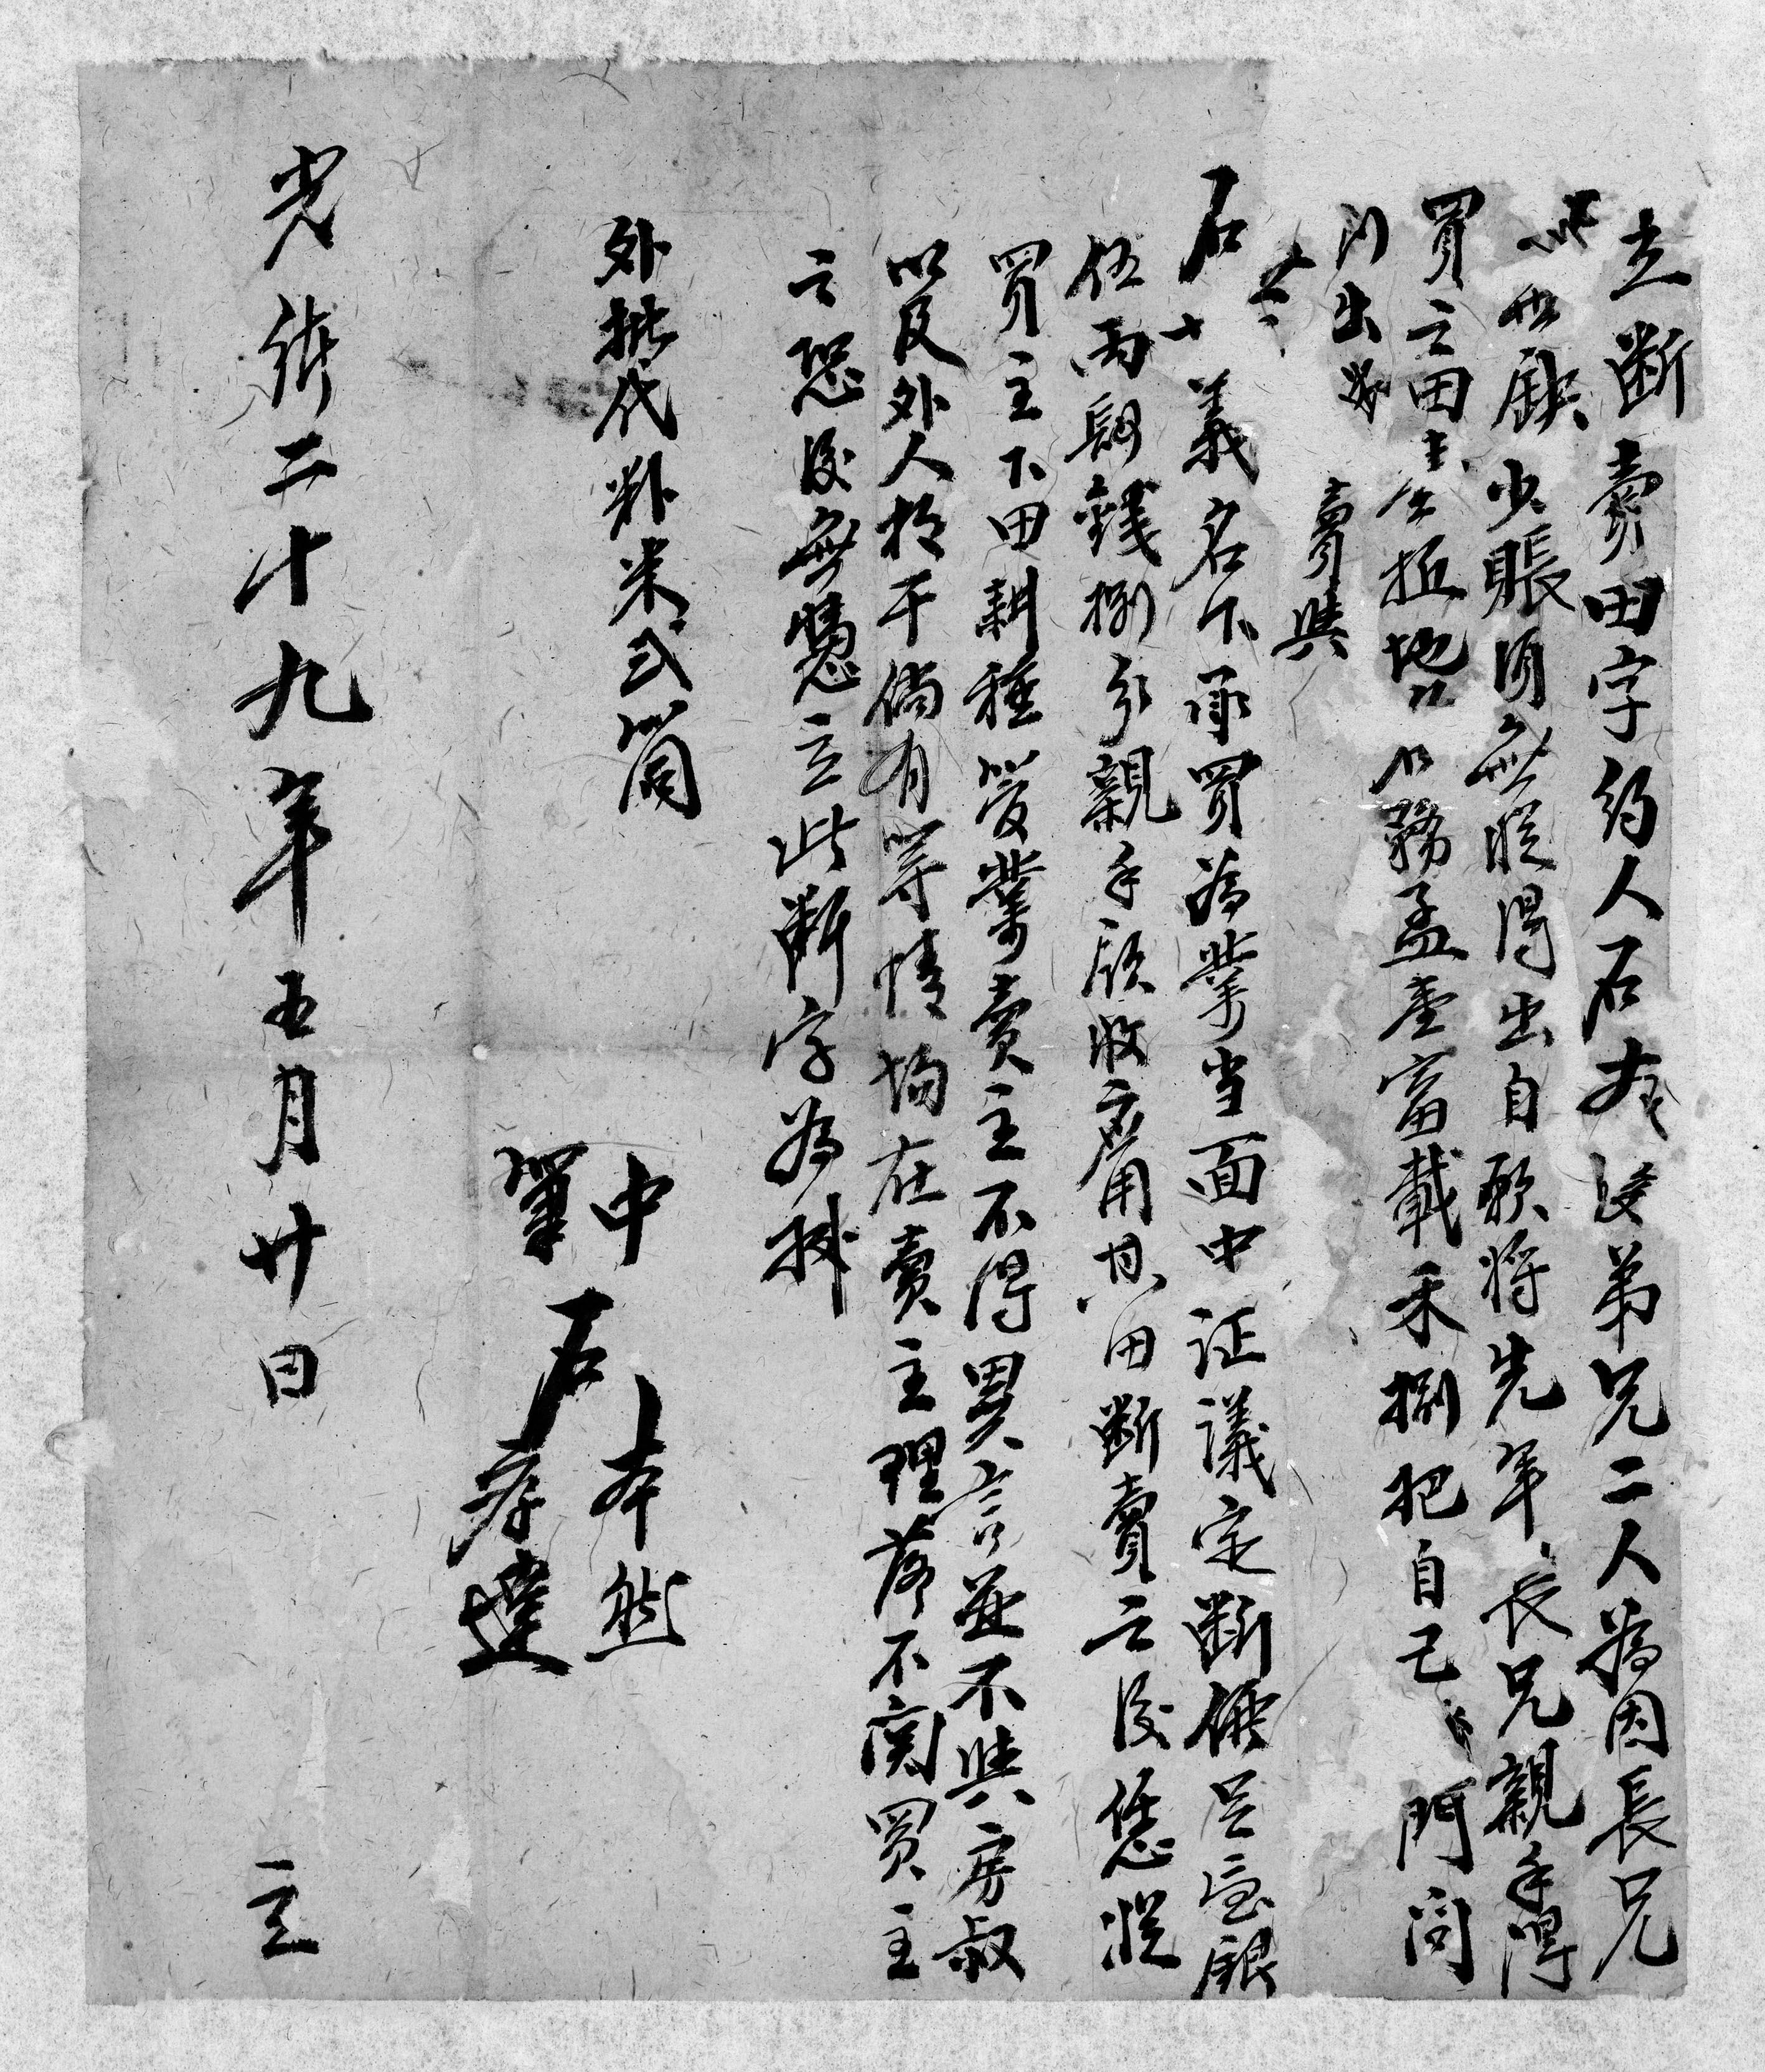 立断賣田字約人石 弟兄二人為因長兄
世缺少賬項無從得出自願将先年長兄親手得
買之田 坵地 孟 富載禾捌把自己 門問
門出 賣與
石 義名下承買為業当面中証議定断價足色銀
伍両 錢捌分親手領收應用其田断賣之後恁從
買主下田耕種管業賣主不得異言並不與房叔
以及外人相干倘有等情均在賣主理落不関買主
之恐後無憑立此断字為據
外批代 米弍筒
中 石本然
筆 石 達
光緒二十九年五月廿日 立